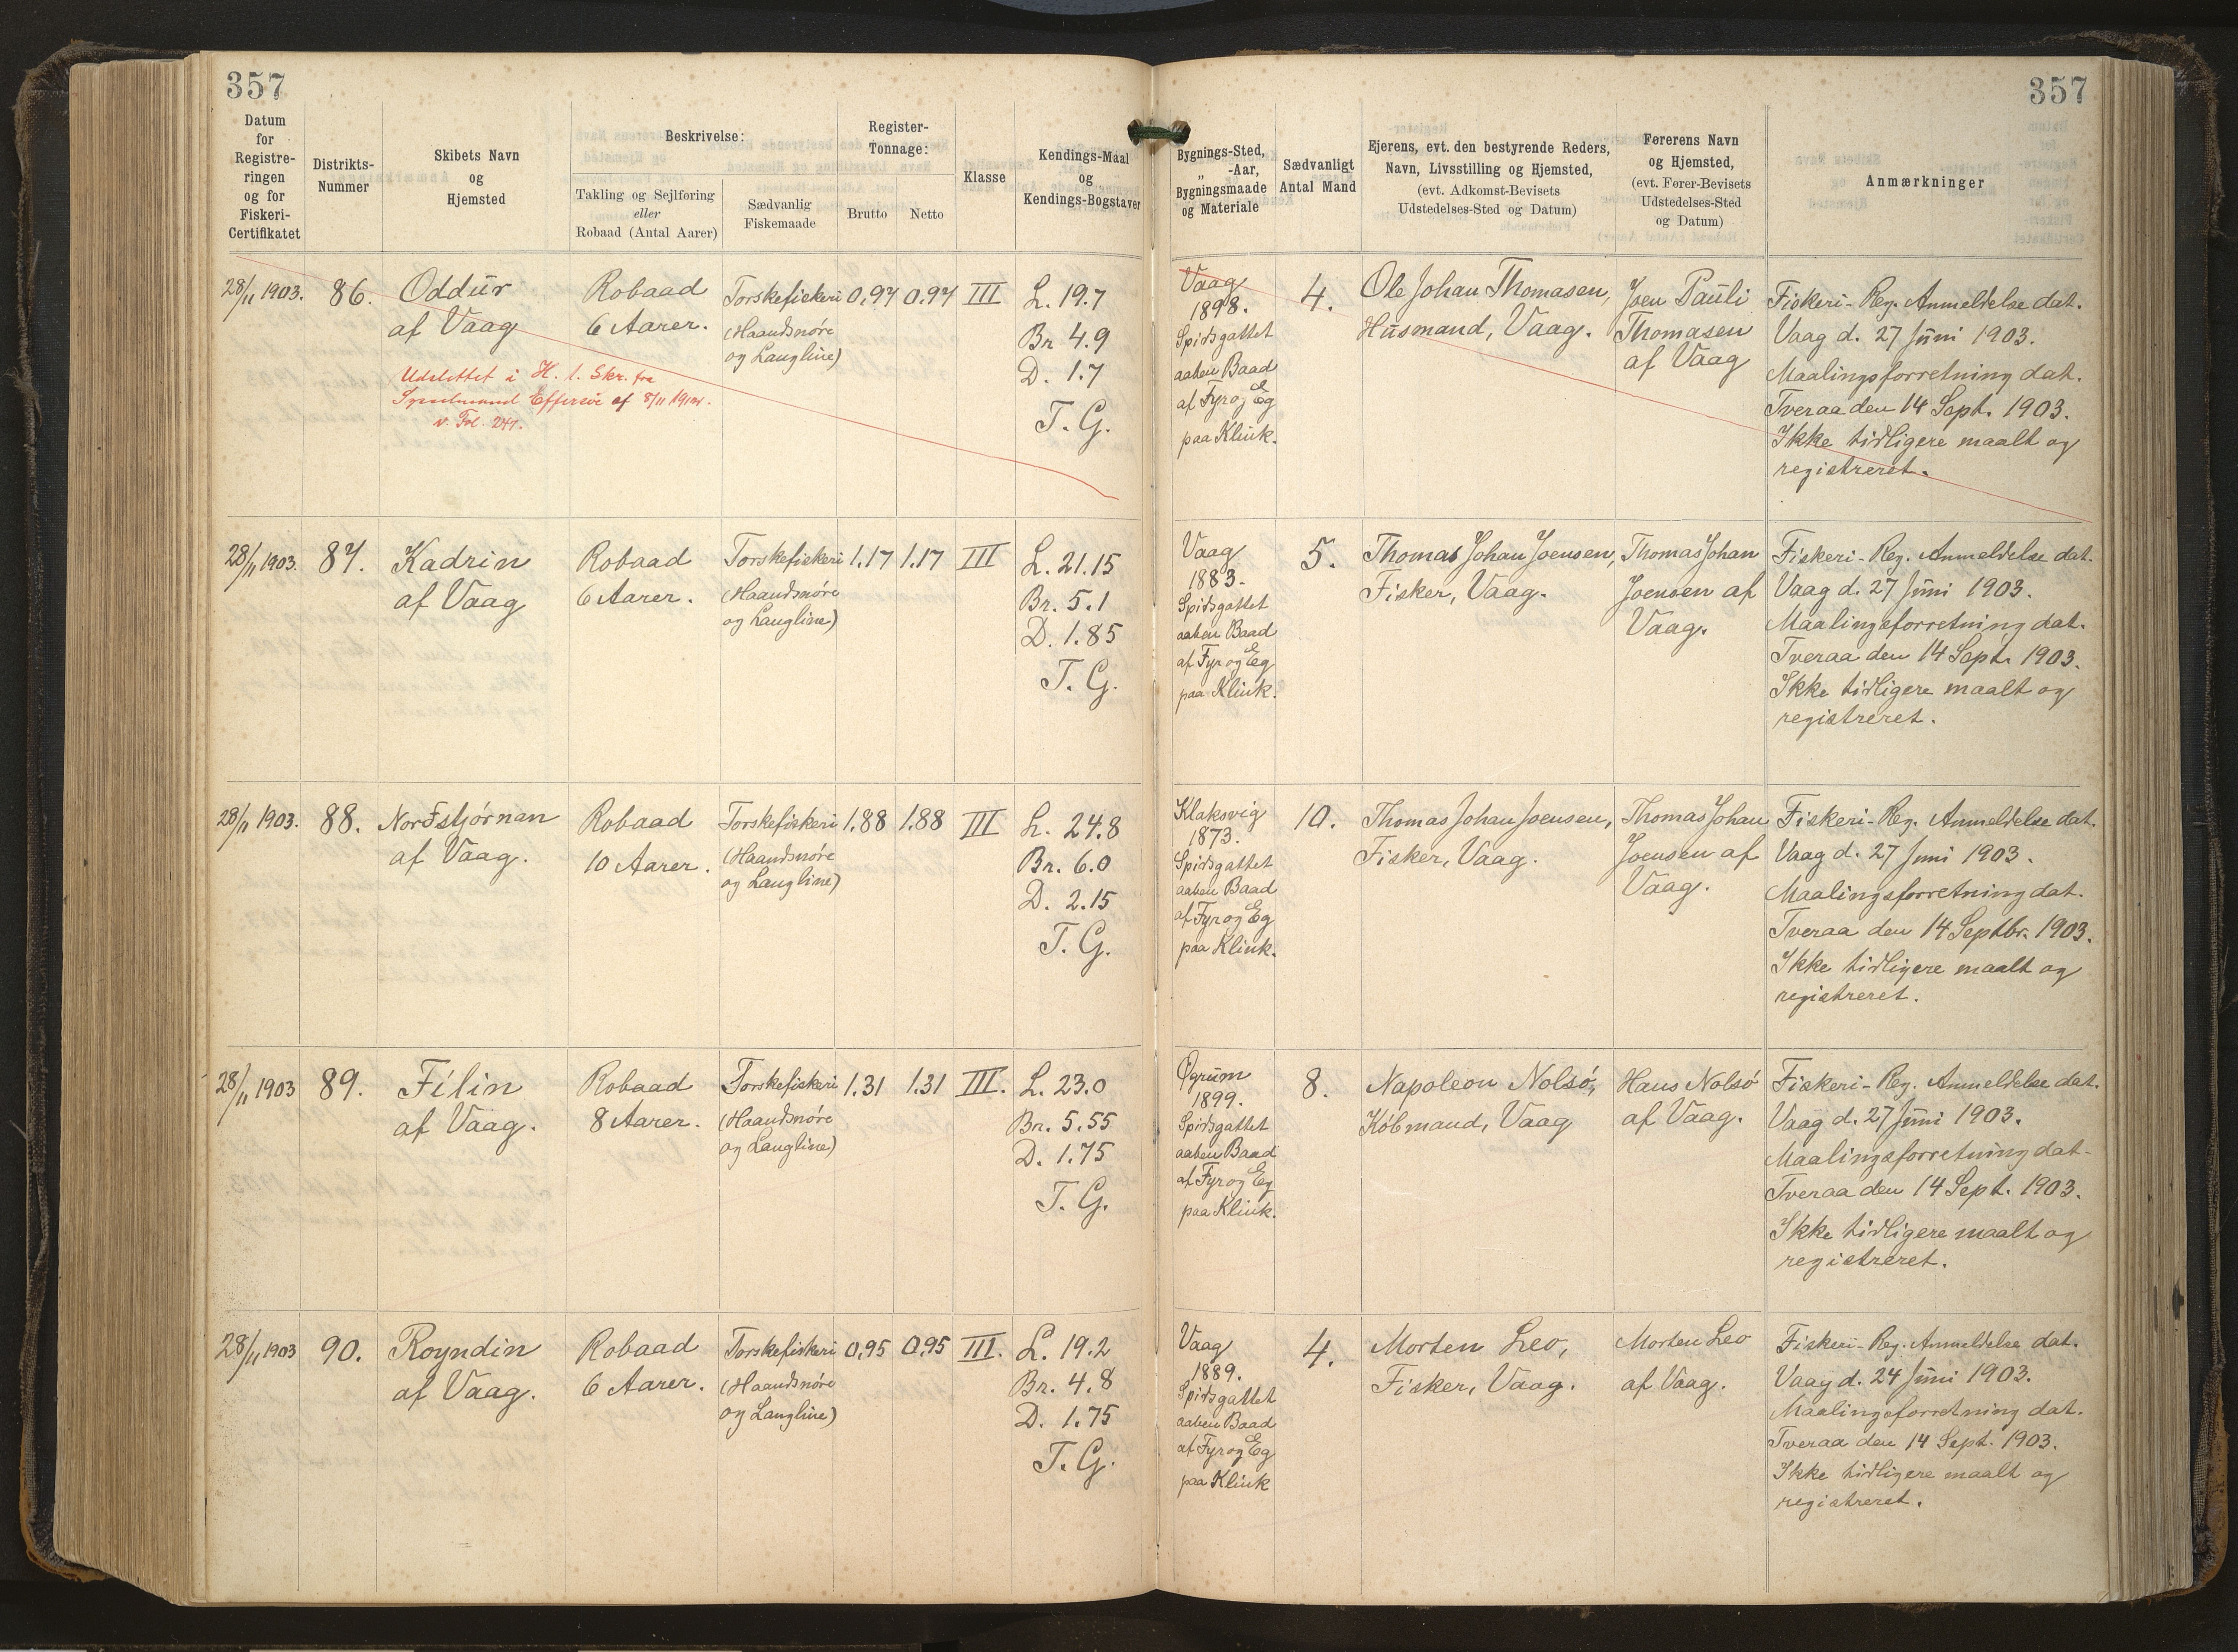 357
357
Datum for Registreringen og for Fiskeri-Certifikatet
Distrikts-Nummer
Skibets Navn og Hjemsted
Beskrivelse:
Takling og Sejlføring eller Robaad (Antal Aarer)
Sædvanlig Fiskemaade
Register-Tonnage:
Brutto
Netto
Klasse
Kendings-Maal og Kendings-Bogstaver
Bygnings-Sted, „ -Aar, Bygningsmaade og Materiale
Sædvanligt Antal Mand
Ejerens, evt. den bestyrende Reders, Navn, Livsstilling og Hjemsted, (evt. Adkomst-Bevisets Udstedelses-Sted og Datum)
Førerens Navn og Hjemsted, (evt. Fører-Bevisets Udstedelses-Sted og Datum)
Anmærkninger
28/11 1903.
86.
Oddur
af Vaag
Udslettet i H. t. Skr. fra
Sysselmand Effersøe af 8/11
v. Fol. 247.
Robaad
6 Aarer.
Torskefiskeri
(Haandsnøre
og Langline)
0,97
0,97
III
L. 19.7
Br 4.9
D. 1.7
T. G.
Vaag
1898.
Spidsgattet
aaben Baad
af Fyr og Eg
paa Klink.
4.
Ole Johan Thomasen,
Husmand, Vaag.
Joen Pauli
Thomasen
af Vaag
Fiskeri-Reg. Anmeldelse dat.
Vaag d. 27 Juni 1903.
Maalingsforretning dat.
Tveraa den 14 Sept. 1903.
Ikke tidligere maalt og
registreret.
28/11 1903.
87.
Kadrin
af Vaag
Robaad
6 Aarer.
Torskefiskeri
(Haandsnøre
og Langline)
1.17
1.17
III
L. 21.15
Br. 5.1
D. 1.85
T. G.
Vaag
1883.
Spidsgattet
aaben Baad
af Fyr og Eg
paa Klink.
5.
Thomas Johan Joensen,
Fisker, Vaag.
Thomas Johan
Joensen af
Vaag.
Fiskeri-Reg. Anmeldelse dat.
Vaag d. 27 Juni 1903.
Maalingsforretning dat.
Tveraa den 14 Sept. 1903.
Ikke tidligere maalt og
registreret.
28/11 1903.
88.
Nordstjørnan
af Vaag.
Robaad
10 Aarer.
Torskefiskeri
(Haandsnøre
og Langline)
1.88
1.88
III
L. 24.8
Br. 6.0
D. 2.15
T. G.
Klaksvig
1873.
Spidsgattet
aaben Baad
af Fyr og Eg
paa Klink.
10.
Thomas Johan Joensen,
Fisker, Vaag.
Thomas Johan
Joensen af
Vaag.
Fiskeri-Reg. Anmeldelse dat.
Vaag d. 27 Juni 1903.
Maalingsforretning dat.
Tveraa den 14 Septbr. 1903.
Ikke tidligere maalt og
registreret.
28/11 1903
89.
Fílin
af Vaag.
Robaad
8 Aarer.
Torskefiskeri
(Haandsnøre
og Langline)
1.31
1.31
III.
L. 23.0
Br. 5.55
D. 1.75
T. G.
Øgrum
1899.
Spidsgattet
aaben Baad
af Fyr og Eg
paa Klink.
8.
Napoleon Nolsø,
Købmand, Vaag
Hans Nolsø
af Vaag.
Fiskeri-Reg. Anmeldelse dat.
Vaag d. 27 Juni 1903.
Maalingsforretning dat.
Tveraa den 14 Sept. 1903.
Ikke tidligere maalt og
registreret.
28/11 1903
90.
Royndin
af Vaag.
Robaad
6 Aarer.
Torskefiskeri
(Haandsnøre
og Langline)
0,95
0,95
III.
L. 19.2
Br. 4.8
D. 1.75
T. G.
Vaag
1889.
Spidsgattet
aaben Baad
af Fyr og Eg
paa Klink
4.
Morten Leo,
Fisker, Vaag.
Morten Leo
af Vaag.
Fiskeri-Reg. Anmeldelse dat.
Vaag d. 24 Juni 1903.
Maalingsforretning dat.
Tveraa den 14 Sept. 1903.
Ikke tidligere maalt og
registreret.